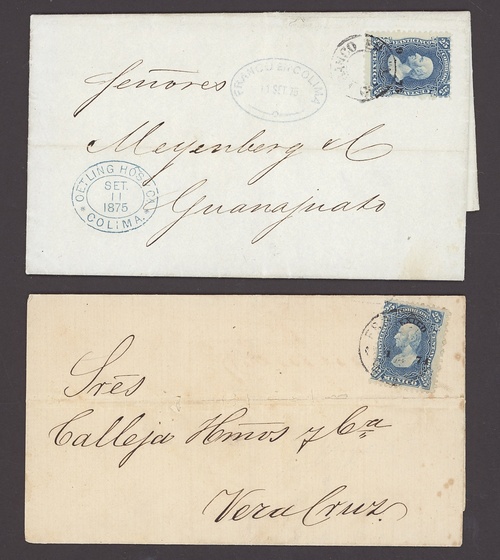 Señores
FRANCO EN COLIMA
11 SET 75
25
Meyenberg & C
OETLING HOS Y CA
SET.
11
1875
COLIMA.
Guanajuato
25
MEXICO
Srés
Calleja Hnos y Ca
Vera Cruz.